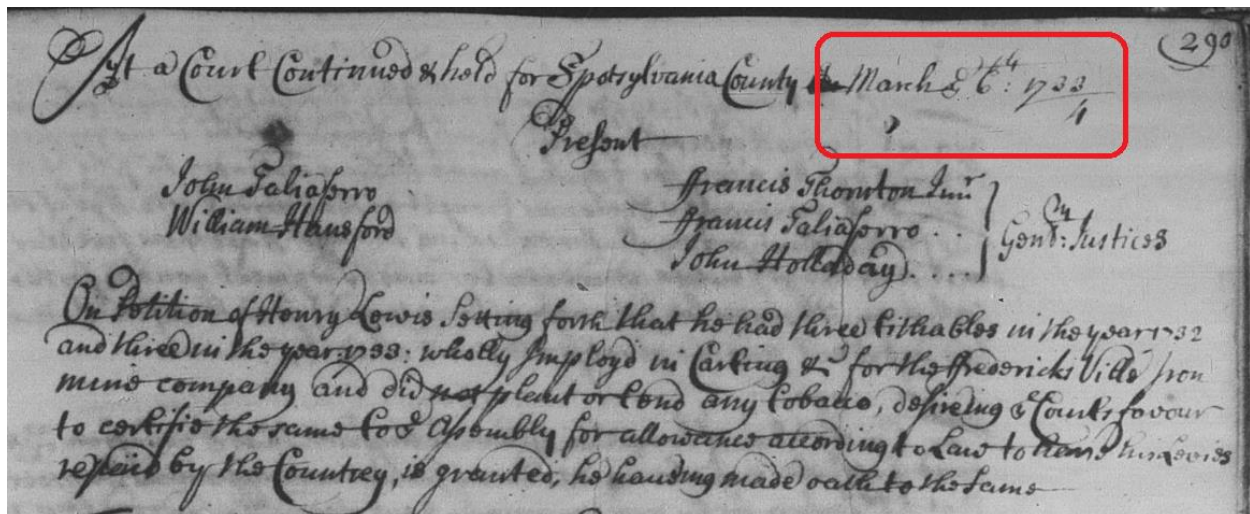 (290
Att a Court Continued & held for Spotsylvania County on March ye 6th: 1733/4
Present
John Taliaferro
William Hansford
ffrancis Thornton Junr
ffrancis Taliaferro ..
John Holladay ....
Gentn: Justices
On Petition of Henry Lewis Setting forth that he had three tithables in the year 1732
and three in the year 1733: wholly Imployd in Carting &c for the ffredericksville Iron
mine company and did not plant or tend any tobacco, desireing ye Courts favour
to certifie the same to ye Assembly for allowance according to Law to have his Levies
repaid by the Countrey, is granted, he haveing made oath to the same